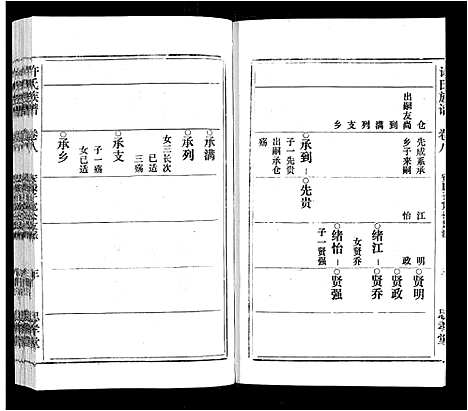 许氏族谱 卷八
思孝堂
出嗣友尚
仓
到
满
列
支
乡
先成系承
乡子来嗣
江
怡
明
政
○承到—○先贵
子一先贵
出嗣承仓
○绪江—○贤乔
女贤乔
○绪怡—○贤强
子一贤强
○贤明
○贤政
许氏族谱 卷八
思孝堂
○承满
○承列
女三长次
已适
三殇
○承支
子一殇
女已适
○承乡